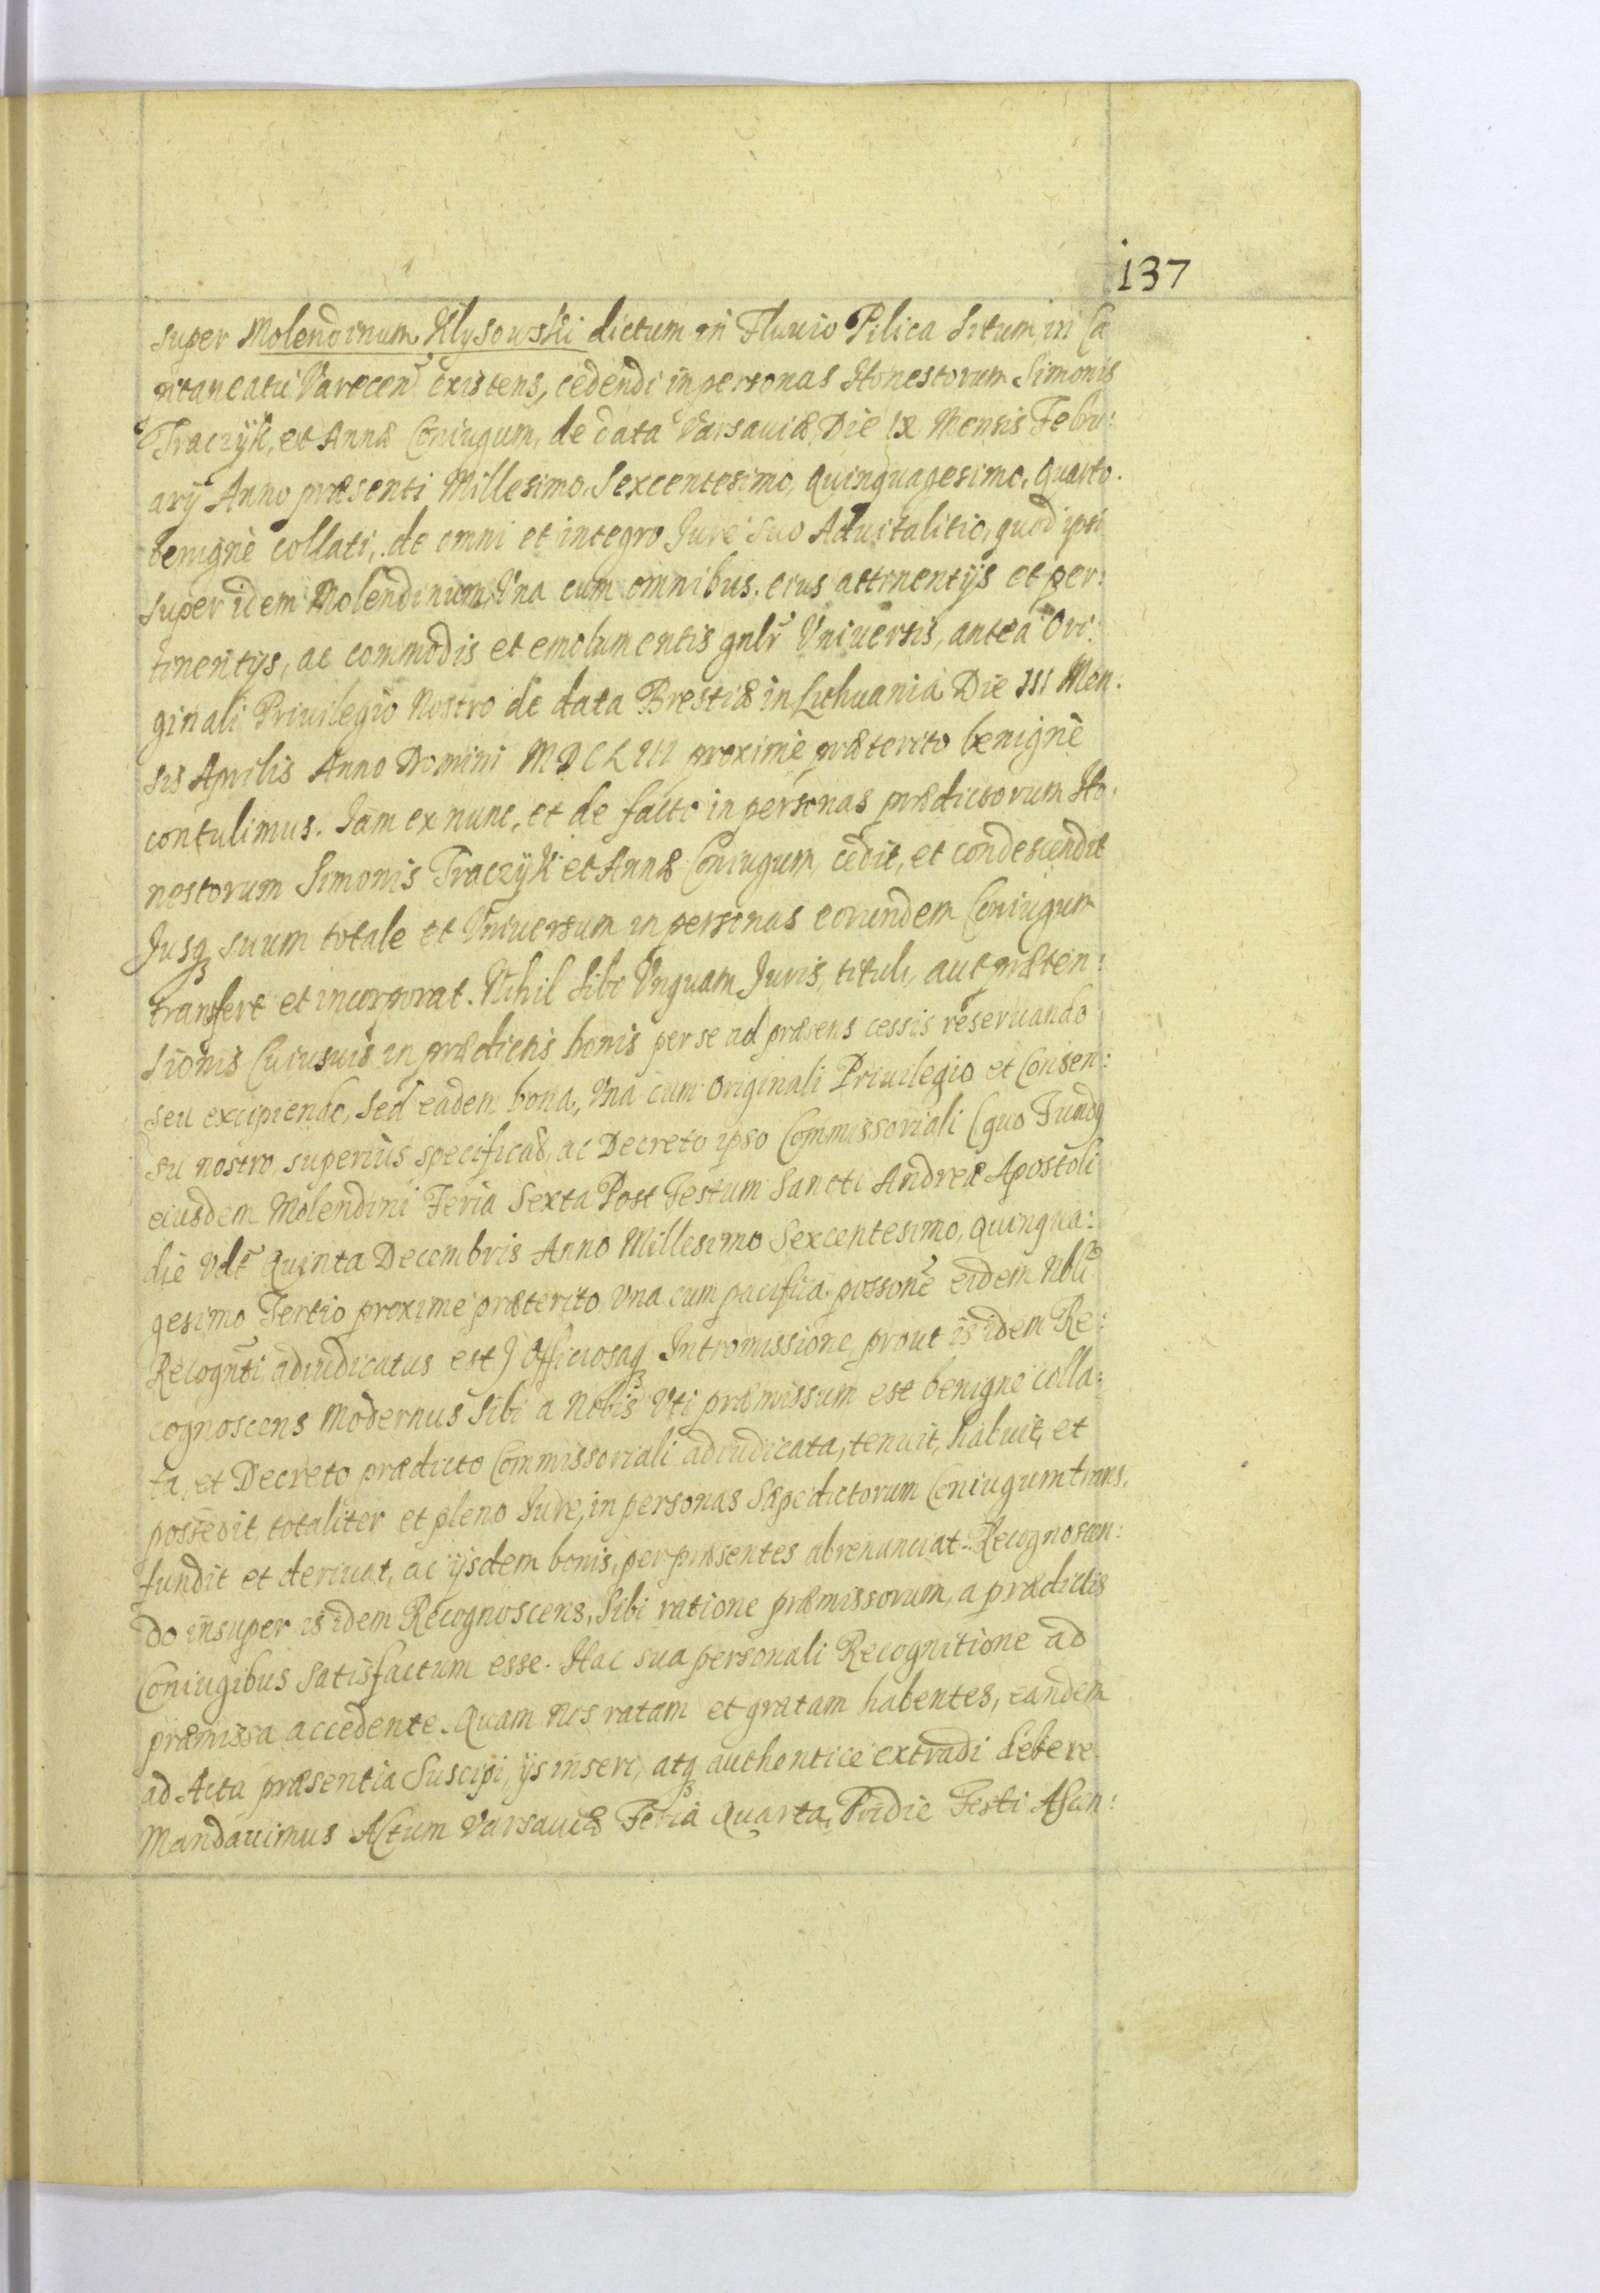 137
super Molendinum Klysowski dictum in Fluvio Pilica situm, in Ca
pitaneatu Varecen̄ existens, cedendi in personas Honestorum Simonis
Traczyk, et Annæ Coniugum, de data Varsaviæ, Die IX Mensis Febru:
arÿ Anno præsenti Millesimo, Sexcentesimo, Quinquagesimo, Quarto.
benignè collati, de omni et integro Iure suo Advitalitio, quod ipsi
super idem Molendinum, Vna cum omnibus eius attinentÿs et per:
tinentÿs, ac commodis et emolumentis gnlr̄ Vniversis, anteà Ori:
ginali Privilegio Nostro de data Brestiæ in Lithuania Die III Men:
sis Aprilis Anno Domini MDCLIII proximè præterito benignè
contulimus. Iam ex nunc, et de facto in personas prædictorum Ho:
nestorum Simonis Traczÿk et Annæ Coniugum, cedit, et condescendit
Jusq₃ suum totale et Vniversum in personas eorundem Coniugum
transfert et incorporat. Nihil sibi Vnquam Juris, tituli, aut præten:
sionis Cuiusvis in prædictis bonis per se ad præsens cessis reservando
seu excipiendo, Sed eadem bona, Vna cum Originali Privilegio et Consen:
su nostro, superiùs specificatis, ac Decreto ipso Commissoriali (quo Fundq
eiusdem Molendini Feria Sexta Post Festum Sancti Andreæ Apostoli
die Vdt̄ Quinta Decembris Anno Millesimo Sexcentesimo, Quinqua:
gesimo Tertio proximè præterito Vna cum pacifica possonē eidem Nbli
Recogn̄ti adiudicatus est) Officiosaq₃ Intromissione, prout is idem Re:
cognoscens Modernus Sibi a Nobis Vti præmissum est benignè colla:
ta, et Decreto prædicto Commissoriali adiudicata, tenuit, habuit, et
possedit totaliter et pleno Iure, in personas Sæpedictorum Coniugum trans:
fundit et derivat, ac ÿsdem bonis, per præsentes abrenunciat. Recognoscen:
do insuper is idem Recognoscens, Sibi ratione præmissorum, a prædictis
Coniugibus Satisfactum esse. Hac sua personali Recognitione ad
præmissa accedente. Quam Nos ratam et gratam habentes, eandem
ad Acta præsentia Suscipi, ÿs inseri, atq₃ authenticè extradi debere
Mandavimus Actum Varsaviæ Feria Quarta, Pridie Festi Ascen: